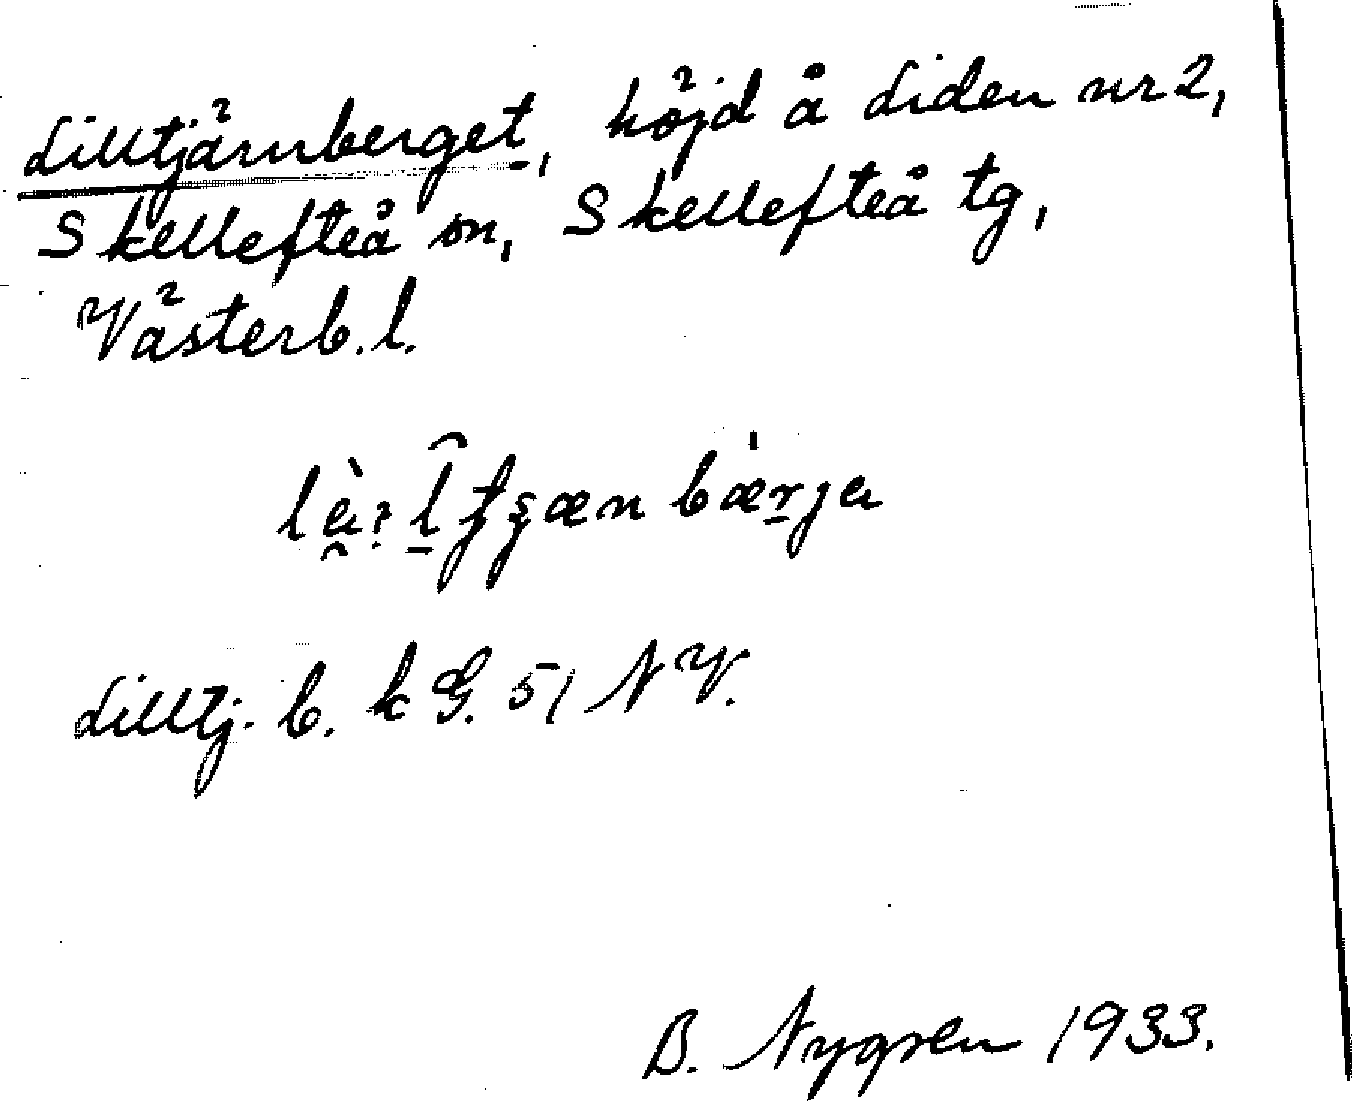 Lilltjärnberget, höjd å Liden nr 2,
Skellefteå sn, Skellefteå tg,
Västerb. l.
Lilltj. b. k G. 51 NV.
B. Nygren 1933.